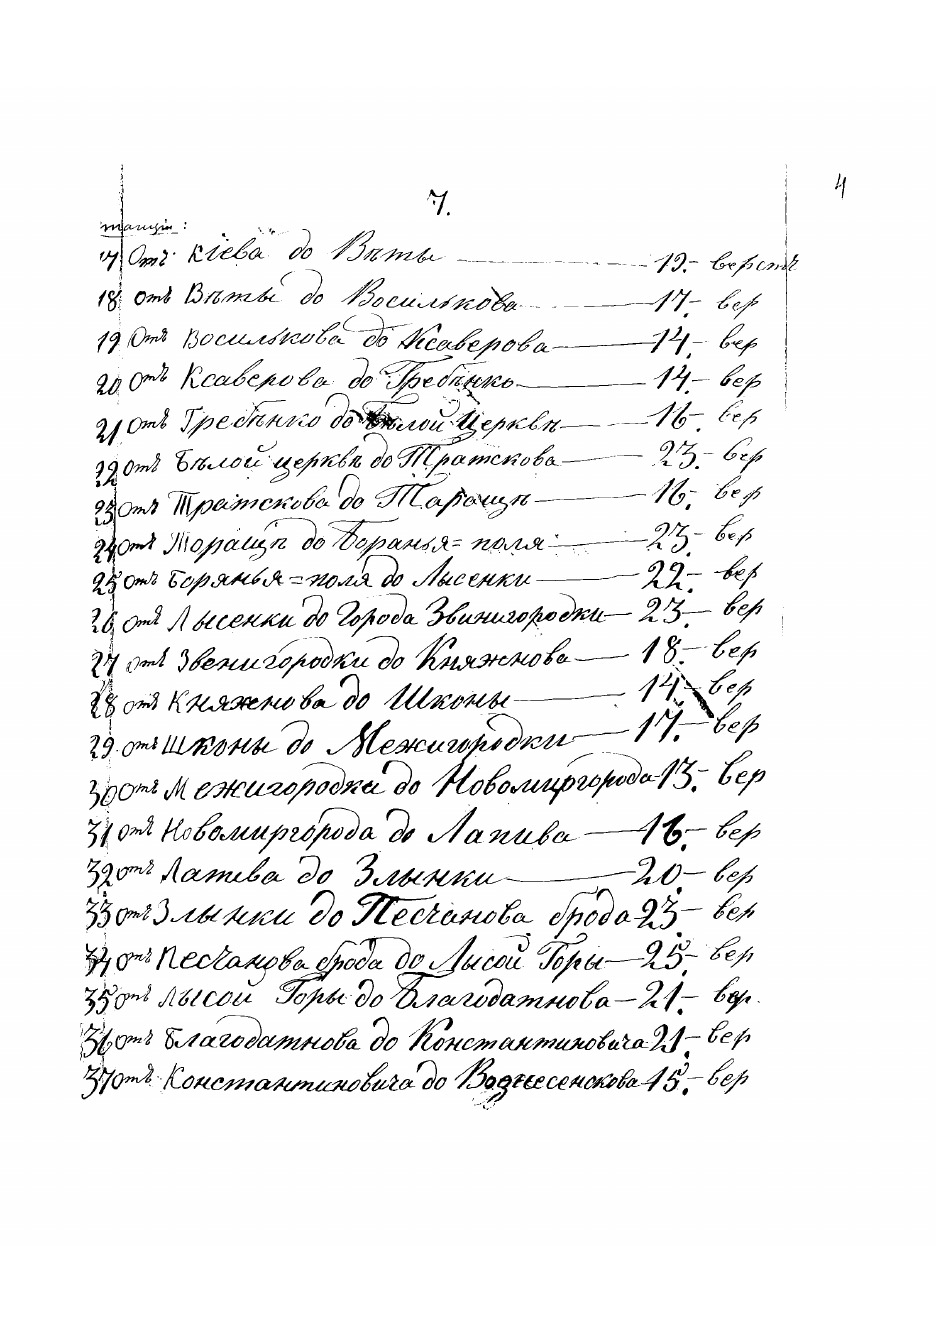 4
7.
танции:
17 Отъ Кіева до Вѣты 19.- верстъ
18 отъ Вѣты до Восилькова 17.- вер
19 Отъ Восилькова до Ксаверова 14.- вер
20 Отъ Ксаверова до Гребѣнко 14.- вер
21 Отъ Гребѣнко до Бѣлой Церквѣ 16.- вер
22 отъ Бѣлой церквѣ до Тратскова 23.- вер
23 отъ Тратскова до Таращѣ 16.- вер
24 отъ Торащѣ до Боранья=поля 23.- вер
25 отъ Борянья=поля до Лысенки 22.- вер
26 отъ Лысенки до Города Звинигородки 23.- вер
27 отъ Звенигородки до Княжнова 18.- вер
28 отъ Княжнова до Шконы 14.- вер
29. отъ Шконы до Межигородки 17.- вер
30 отъ Межигородки до Новомиргорода 13.- вер
31 отъ Новомиргорода до Лапива 16.- вер
32 отъ Лапива до Злынки 20.- вер
33 отъ Злынки до Песчанова брода 23.- вер
34 отъ Песчанова брода до Лысой Горы 25.- вер
35 отъ Лысой Горы до Благодатнова 21.- вер.
36 отъ Благодатнова до Константиновича 21.- вер
37 отъ Константиновича до Вознесенскова 15.- вер